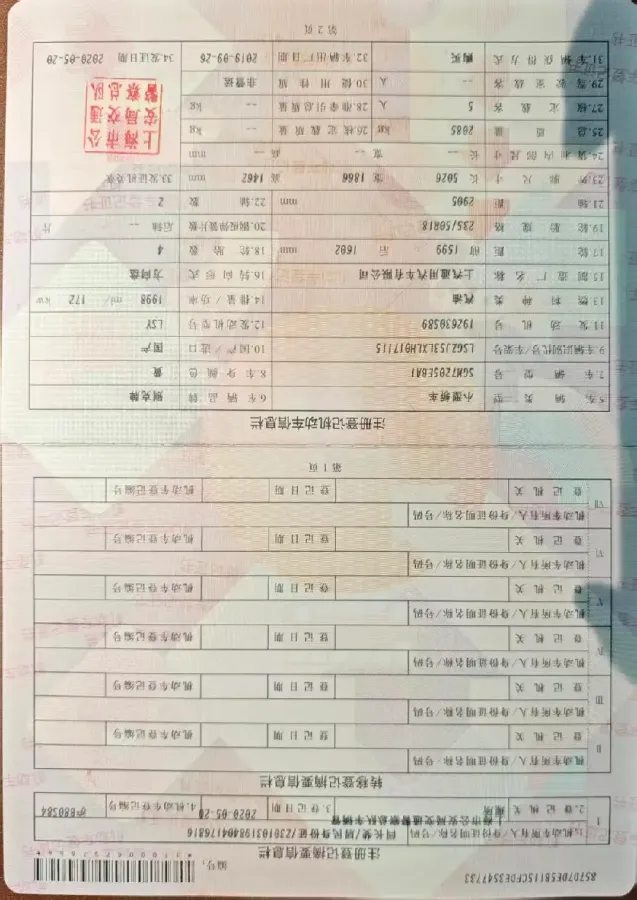 编号:
注册登记摘要信息栏
I 1.机动车所有人/身份证明名称/号码 /居民身份证/230103198404176816
2.登记机关 上海市公安局交通警察总队车辆管理所 3.登记日期 2020-05-20 4.机动车登记编号
转移登记摘要信息栏
II 机动车所有人/身份证明名称/号码
登记机关 登记日期 机动车登记编号
III 机动车所有人/身份证明名称/号码
登记机关 登记日期 机动车登记编号
IV 机动车所有人/身份证明名称/号码
登记机关 登记日期 机动车登记编号
V 机动车所有人/身份证明名称/号码
登记机关 登记日期 机动车登记编号
VI 机动车所有人/身份证明名称/号码
登记机关 登记日期 机动车登记编号
VII 机动车所有人/身份证明名称/号码
登记机关 登记日期 机动车登记编号
第1页
注册登记机动车信息栏
5.车辆类型 小型轿车 6.车辆品牌 别克牌
7.车辆型号 SGM7205EBA1 8.车身颜色 黄
9.车辆识别代号/车架号 LSGZJ53LXLH017115 10.国产/进口 国产
11.发动机号 192630589 12.发动机型号 LSY
13.燃料种类 汽油 14.排量/功率 1998 ml/ 172 kw
15.制造厂名称 上汽通用汽车有限公司 16.转向形式 方向盘
17.轮距 前 1599 后 1602 mm 18.轮胎数 4
19.轮胎规格 235/50R18 20.钢板弹簧片数 后轴 -- 片
21.轴距 2905 mm 22.轴数 2
23.外廓尺寸 长 5026 宽 1866 高 1462 mm 33.发证机关章
24.货箱内部尺寸 长 -- 宽 -- 高 -- mm
25.总质量 2085 kg 26.核定载质量 -- kg
27.核定载客 5 人 28.准牵引总质量 -- kg
29.驾驶室载客 -- 人 30.使用性质 非营运
31.车辆获得方式 购买 32.车辆出厂日期 2019-09-26 34.发证日期 2020-05-20
上海市公
安局交通
警察总队
第2页